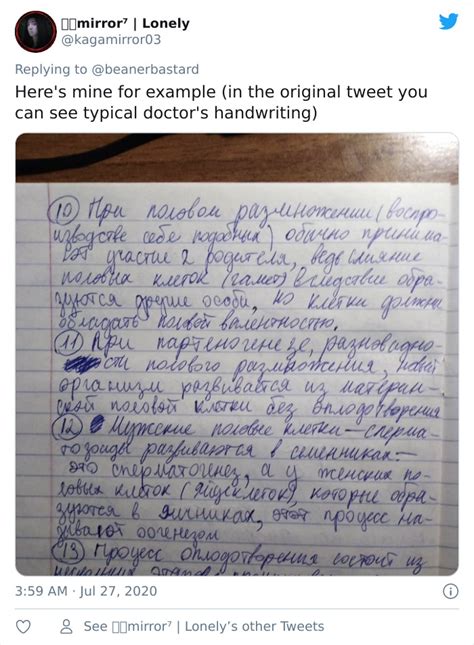 mirror⁷ | Lonely
@kagamirror03
Replying to @beanerbastard
Here's mine for example (in the original tweet you
can see typical doctor's handwriting)
(10) При половом размножении (воспро-
изводстве себе подобных) обычно принима-
ют участие 2 родителя, ведь слияние
половых клеток (гамет) вследствие обра-
зуются другие особи, но клетки должна
обладать половой валентностью.
(11) При партеногенезе, разновидно-
сти полового размножения, новый
организм развивается из материн-
ской половой клетки без оплодотворения
(12) Мужские половые клетки — сперма-
тозоиды развиваются в семенниках —
это сперматогенез, а у женских по-
ловых клеток (яйцеклеток), которые обра-
зуются в яичниках, этот процесс на-
зывают оогенезом
(13) Процесс оплодотворения состоит из
нескольких этапов
3:59 AM · Jul 27, 2020
See mirror⁷ | Lonely's other Tweets